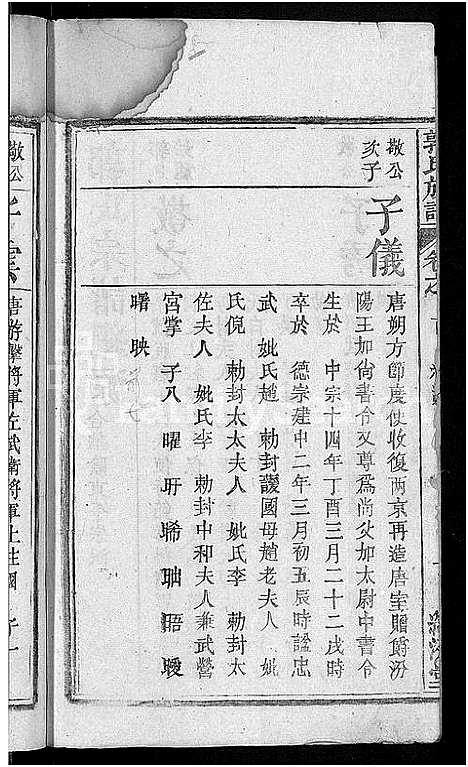 郭氏族譜
敬公
次子
子儀
唐朔方節度使收復兩京再造唐室贈爵汾
陽王加尚書令又尊為尚父加太尉中書令
生於 中宗十四年丁酉三月二十二戌時
卒於 德宗建中二年三月初五辰時諡忠
武 妣氏趙 勅封護國母趙老夫人 妣
氏倪 勅封太太夫人 妣氏李 勅封太
佐夫人 妣氏李 勅封中和夫人兼武營
宮掌 子八 曜 旰 晞 昢 晤 曖
曙 映
敬公
子雲
唐游擊將軍左武衛將軍上柱國 子一